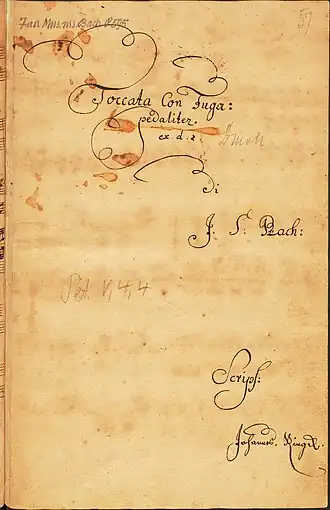 Mus.ms. Bach P 595
57
Toccata Con Fuga:
pedaliter.
ex. d. #.
Dmoll
di
J. S. Bach:
Pet. V, 4, 4
Scrips:
Johannes. Ringk.